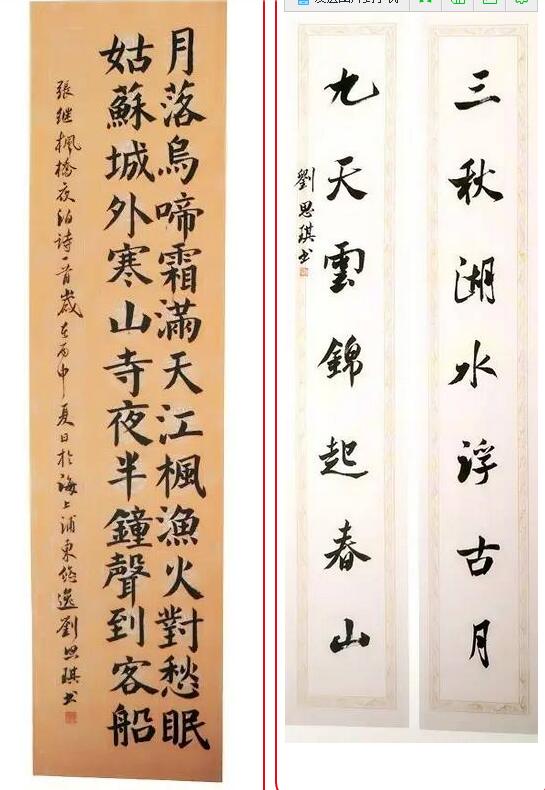 月落烏啼霜滿天江楓漁火對愁眠
姑蘇城外寒山寺夜半鐘聲到客船
張继楓橋夜泊詩一首歲在丙申夏日於海上浦東悠逸劉思琪书
三秋湖水浮古月
九天雲錦起春山
劉思琪书